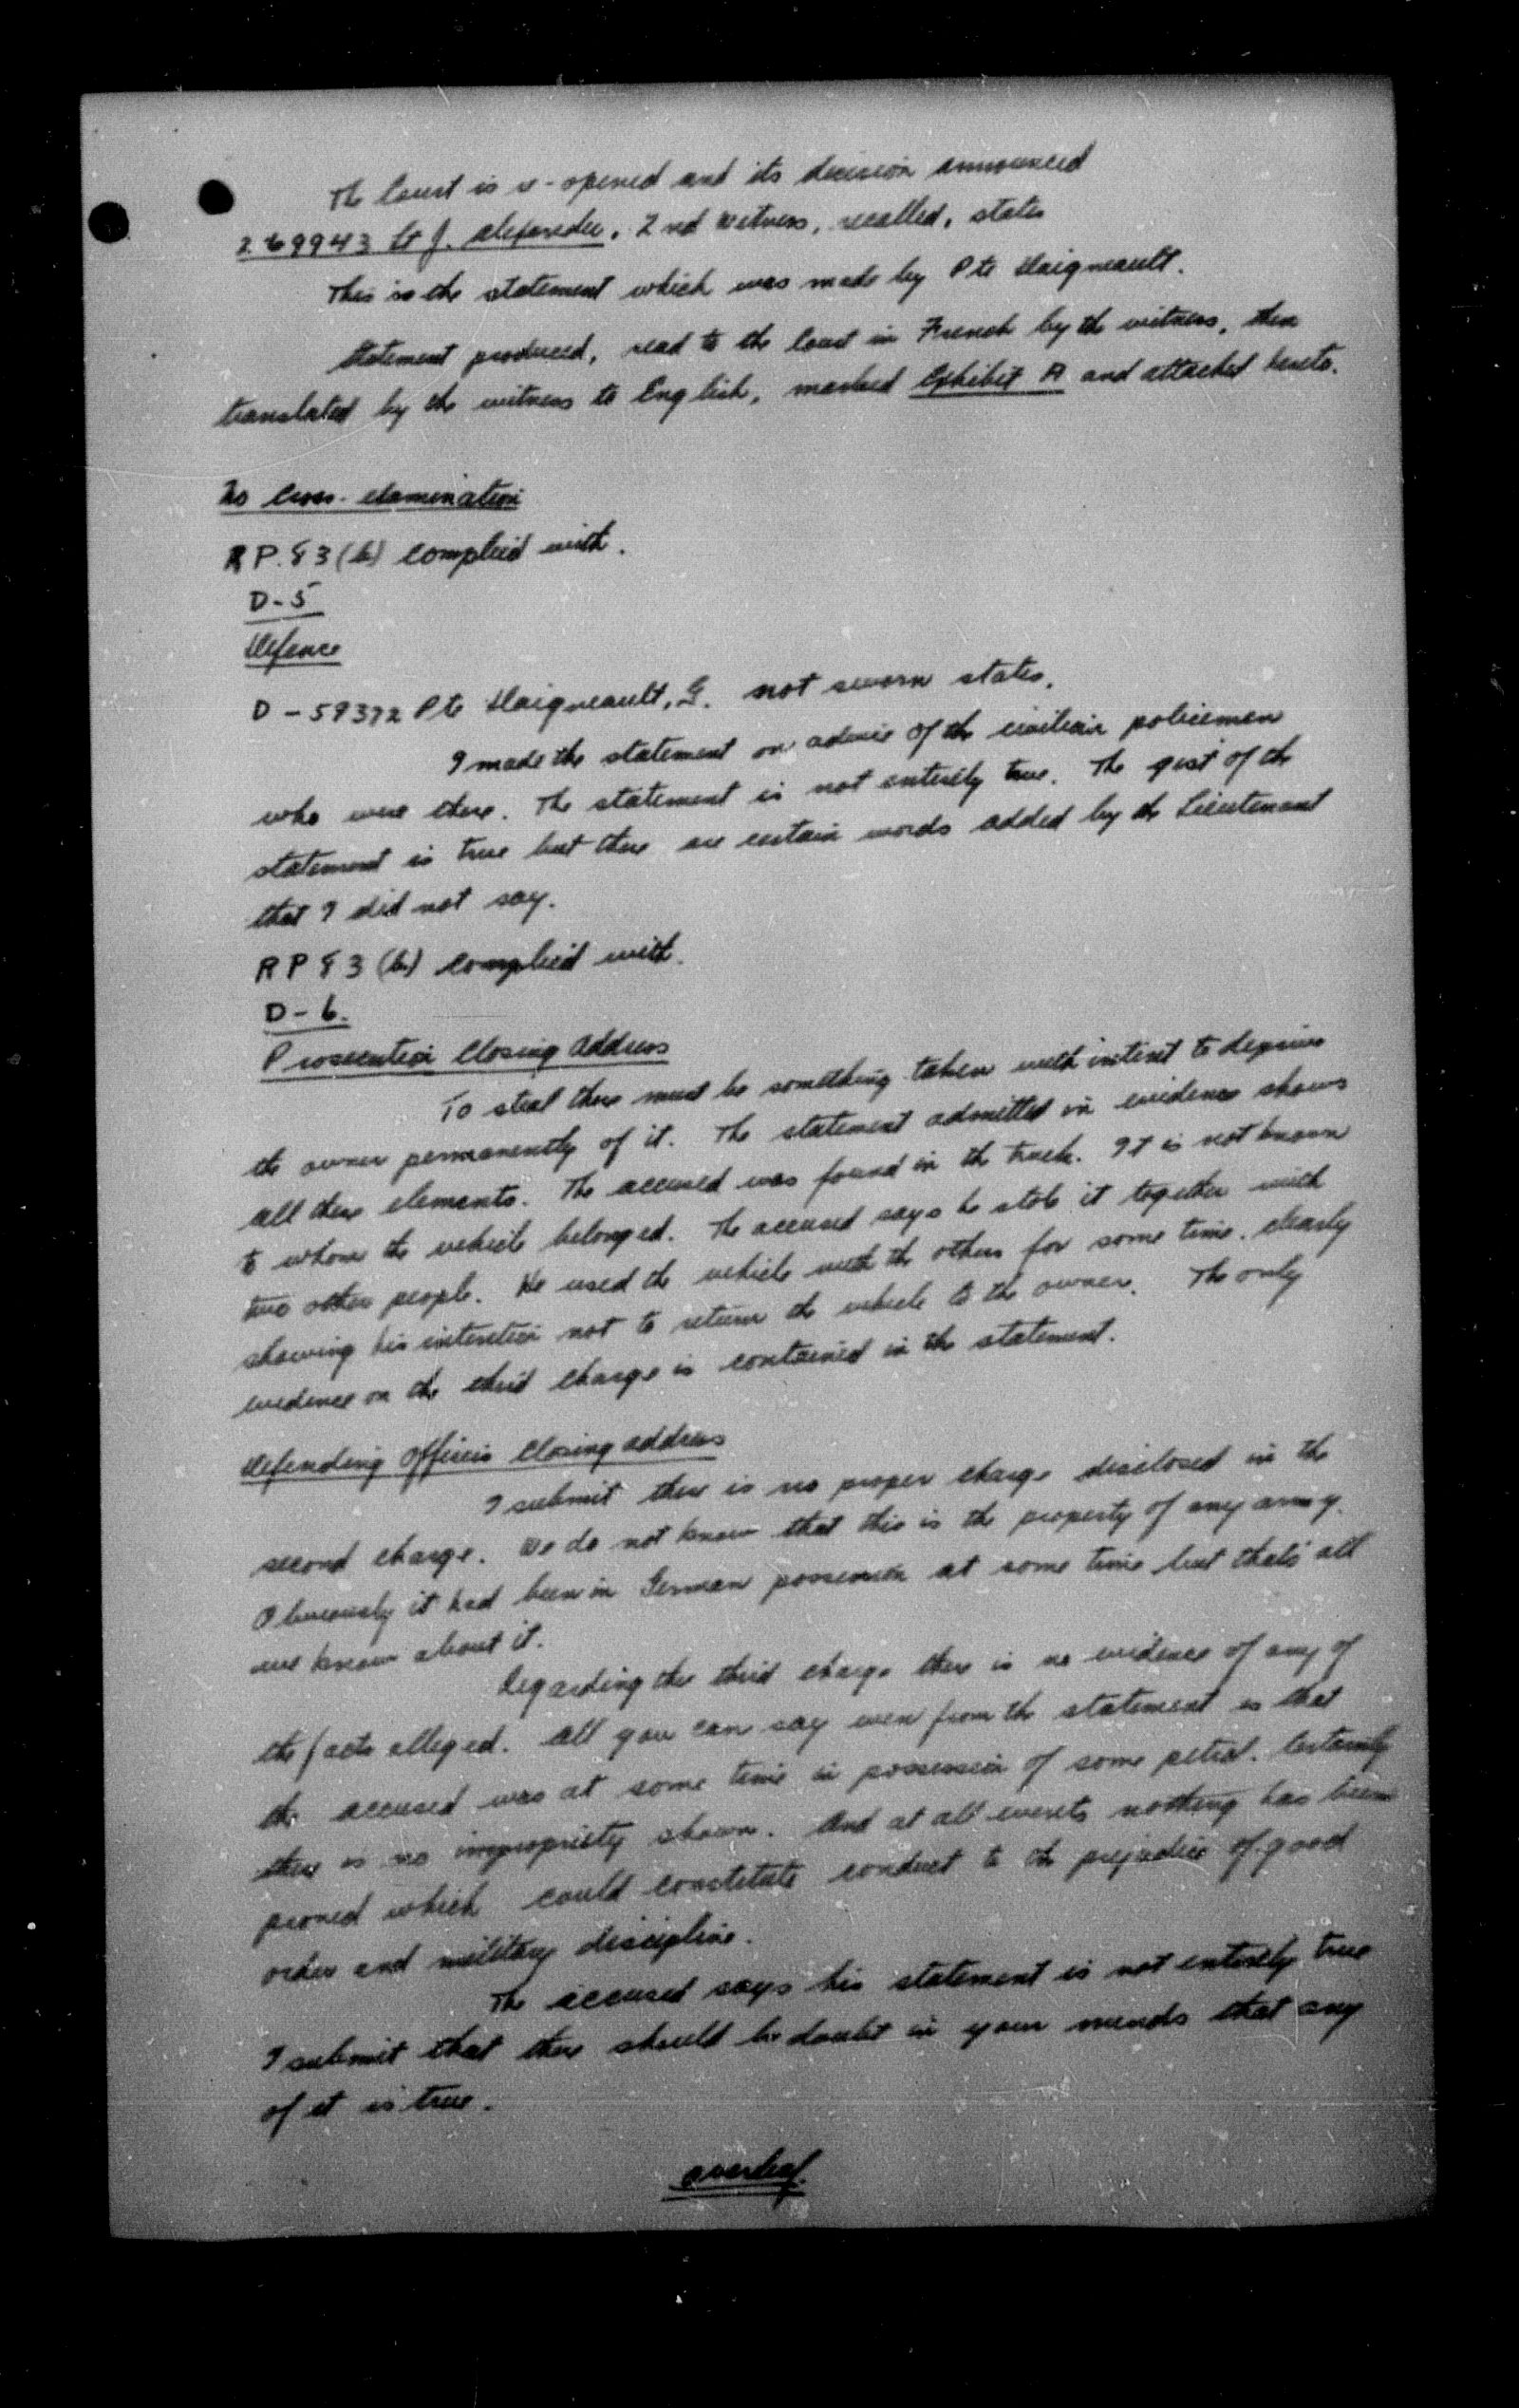 The Court is re-opened and its decision announced
269943 Lt J. Alexander, 2nd Witness, recalled, states
This is the statement which was made by Pte Daigneault.
Statement produced, read to the Court in French by the witness, then
translated by the witness to English, marked Exhibit A and attached hereto.
No Cross-examination
RP. 83 (b) complied with.
D-5
Defence
D-59372 Pte Daigneault, G. not sworn states.
I made the statement on advice of the civilian policemen
who were there. The statement is not entirely true. The gist of the
statement is true but there are certain words added by the Lieutenant
that I did not say.
RP 83 (b) complied with.
D-6.
Prosecution Closing Address
To steal there must be something taken with intent to deprive
the owner permanently of it. The statement admitted in evidence shows
all these elements. The accused was found in the truck. It is not known
to whom the vehicle belonged. The accused says he stole it together with
two other people. He used the vehicle with the others for some time, clearly
showing his intention not to return the vehicle to the owner. The only
evidence on the third charge is contained in the statement.
Defending Officers Closing address
I submit there is no proper charge disclosed in the
second charge. We do not know that this is the property of any army.
Obviously it had been in German possession at some time but that's all
we know about it.
Regarding the third charge there is no evidence of any of
the facts alleged. All you can say even from the statement is that
the accused was at some time in possession of some petrol. Certainly
there is no impropriety shown. And at all events nothing has been
proved which could constitute conduct to the prejudice of good
order and military discipline.
The accused says his statement is not entirely true
I submit that there should be doubt in your minds that any
of it is true.
overleaf.